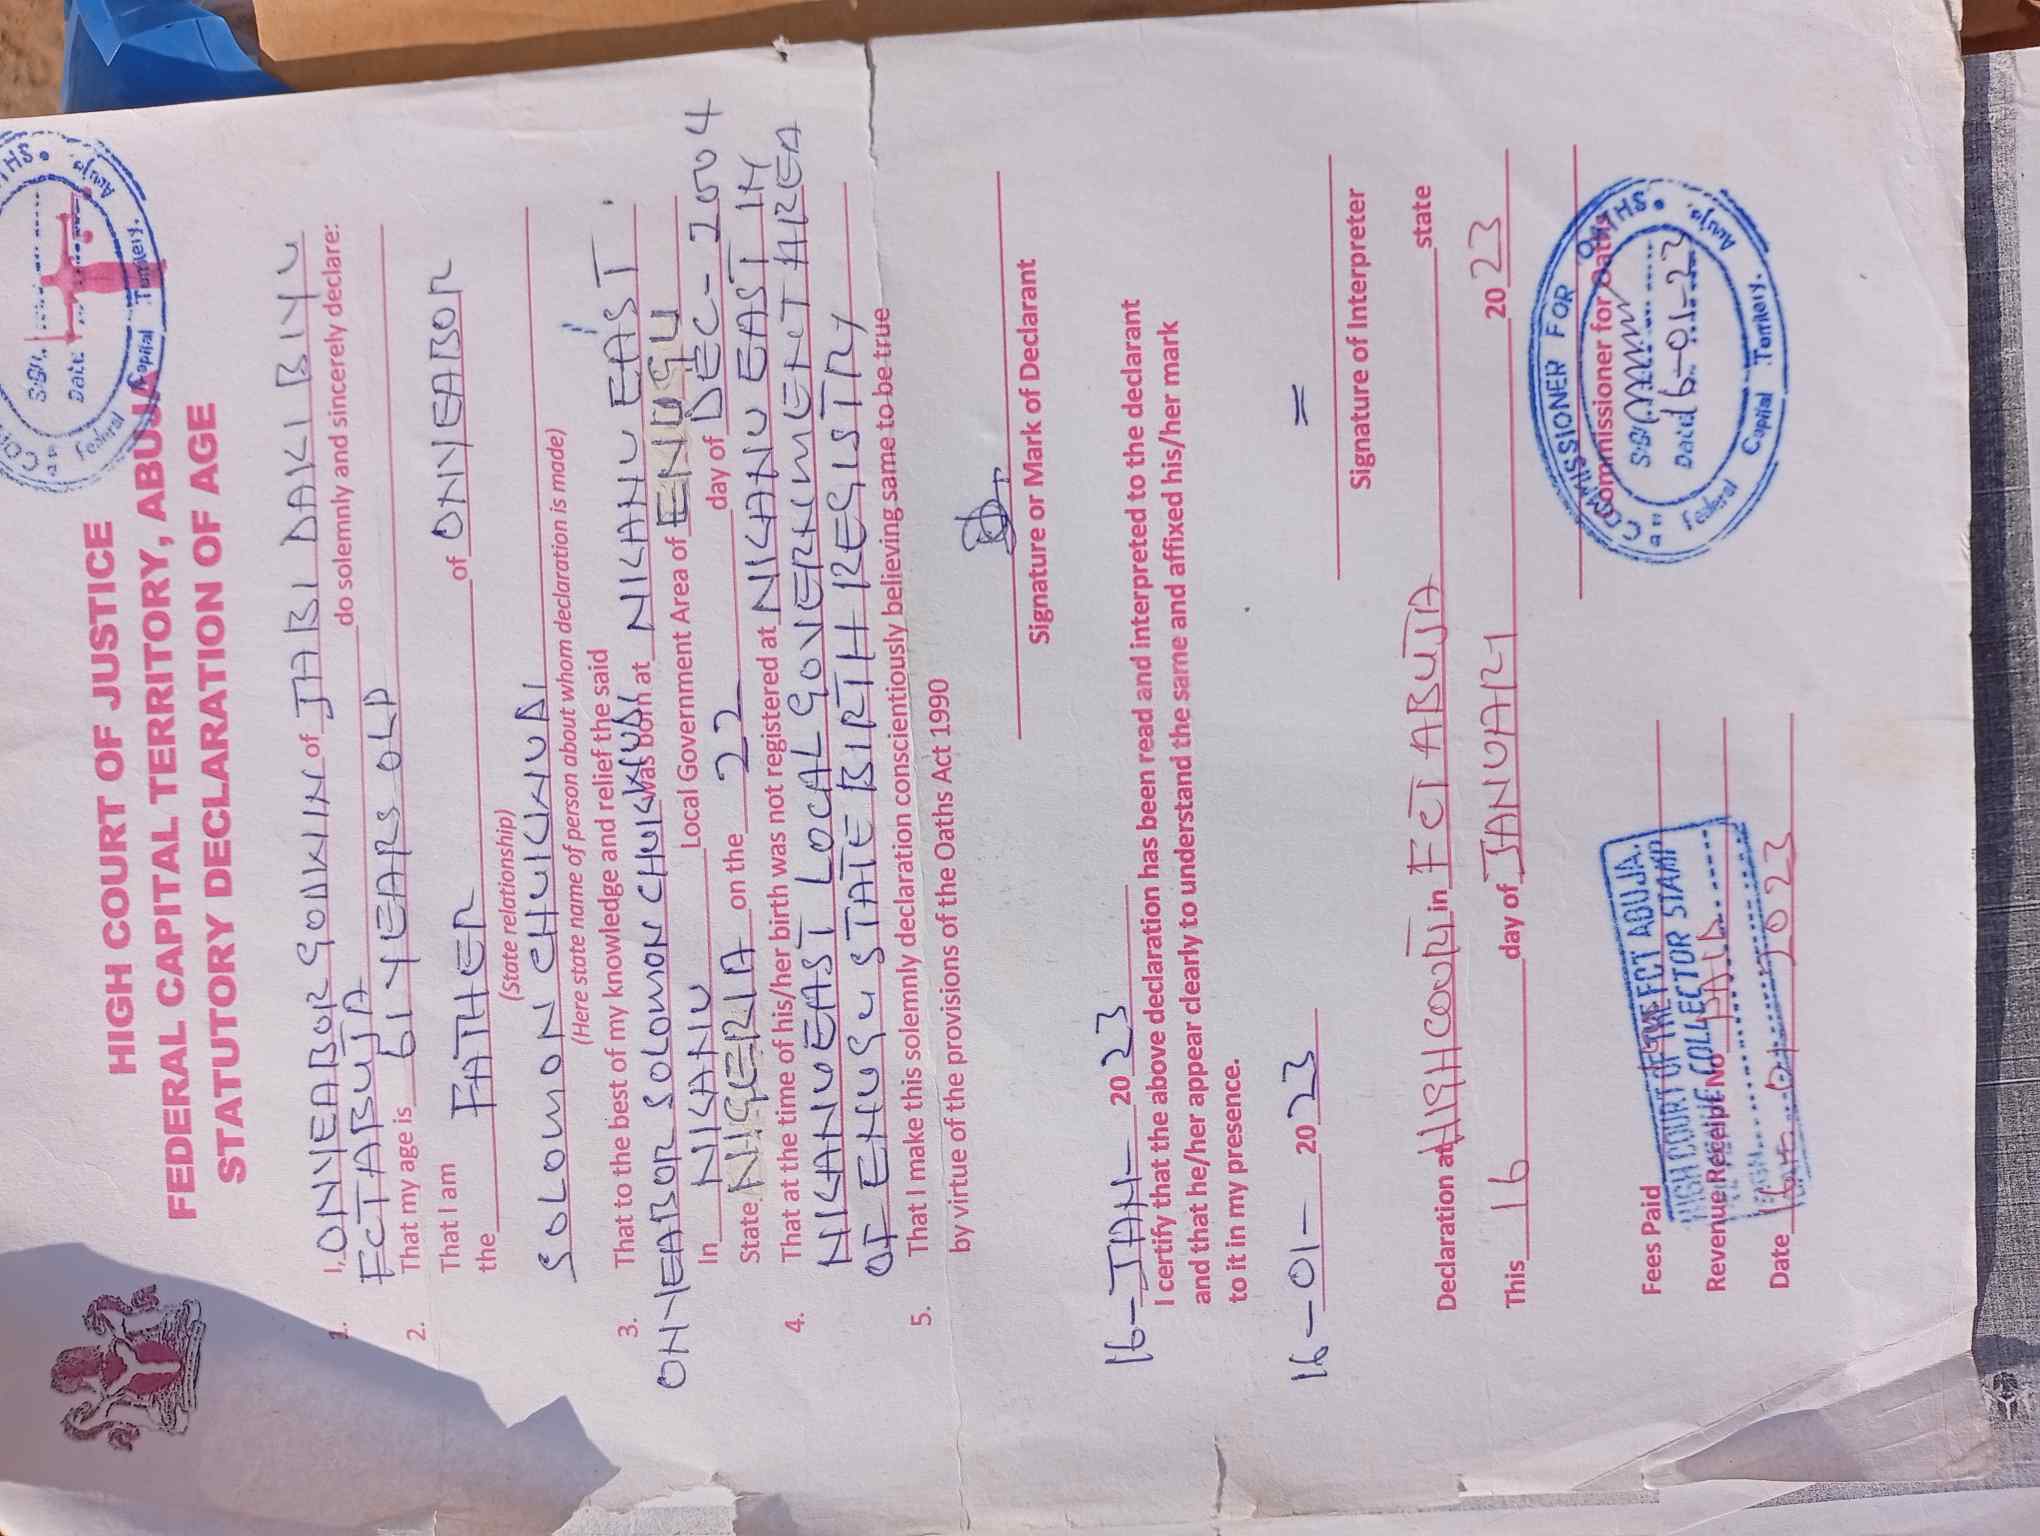 HIGH COURT OF JUSTICE
FEDERAL CAPITAL TERRITORY, ABUJA
STATUTORY DECLARATION OF AGE
Sgn.
Date
Federal Capital Territory.
Abuja
1. I, ONYEABOR GODWIN of JABI DAKI BIYU
FCT ABUJA do solemnly and sincerely declare:
That my age is 61 YEARS OLD
2. That I am
the FATHER of ONYEABOR
(State relationship)
SOLOMON CHUKWUDI
(Here state name of person about whom declaration is made)
3. That to the best of my knowledge and relief the said
ONYEABOR SOLOMON CHUKWUDI was born at NKANU EAST
In NKANU Local Government Area of ENUGU
State NIGERIA on the 22 day of DEC- 2004
4. That at the time of his/her birth was not registered at NKANU EAST IN
NKANU EAST LOCAL GOVERNMENT AREA
OF ENUGU STATE BIRTH REGISTRY
5. That I make this solemnly declaration conscientiously believing same to be true
by virtue of the provisions of the Oaths Act 1990
Signature or Mark of Declarant
16-JAN- 2023
I certify that the above declaration has been read and interpreted to the declarant
and that he/her appear clearly to understand the same and affixed his/her mark
to it in my presence.
16-01- 2023
=
Signature of Interpreter
Declaration at HIGH COURT in FCT ABUJA state
This 16 day of JANUARY 2023
Commissioner for Oaths
COMMISSIONER FOR OATHS.
Sgn
Dated 16-01-23
Federal Capital Territory.
Abuja
Fees Paid
HIGH COURT OF THE FCT ABUJA.
REVENUE COLLECTOR STAMP
Revenue Receipt No PAID
Date 16-01-2023